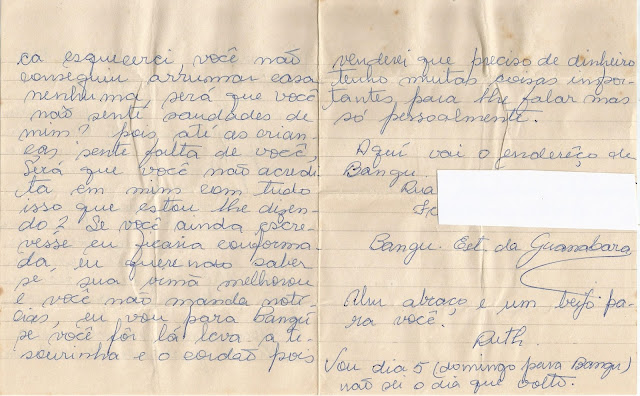 ca esquicerci, você não
conseguiu arrumar casa
nenhuma, será que você
não sente saudades de
mim? pois até as crian-
ças sente falta de você,
Será que você não acredi-
ta em mim com tudo
isso que estou lhe dizen-
do? Se você ainda escre-
vesse eu ficaria conforma-
da, eu quero saber
se sua irmã melhorou
e você não manda noti-
cias, eu vou para Bangú
se você fôr lá leva a te-
sourinha e o cordão pois
venderei que preciso de dinheiro
tenho muitas coisas impor-
tantes para lhe falar mas
só pessoalmente.
Aqui vai o endereço de
Bangu.
Rua
Bangu. Est. da Guanabara
Um abraço e um beijo pa-
ra você.
Ruth.
Vou dia 5 (domingo para Bangu)
não sei o dia que volto.